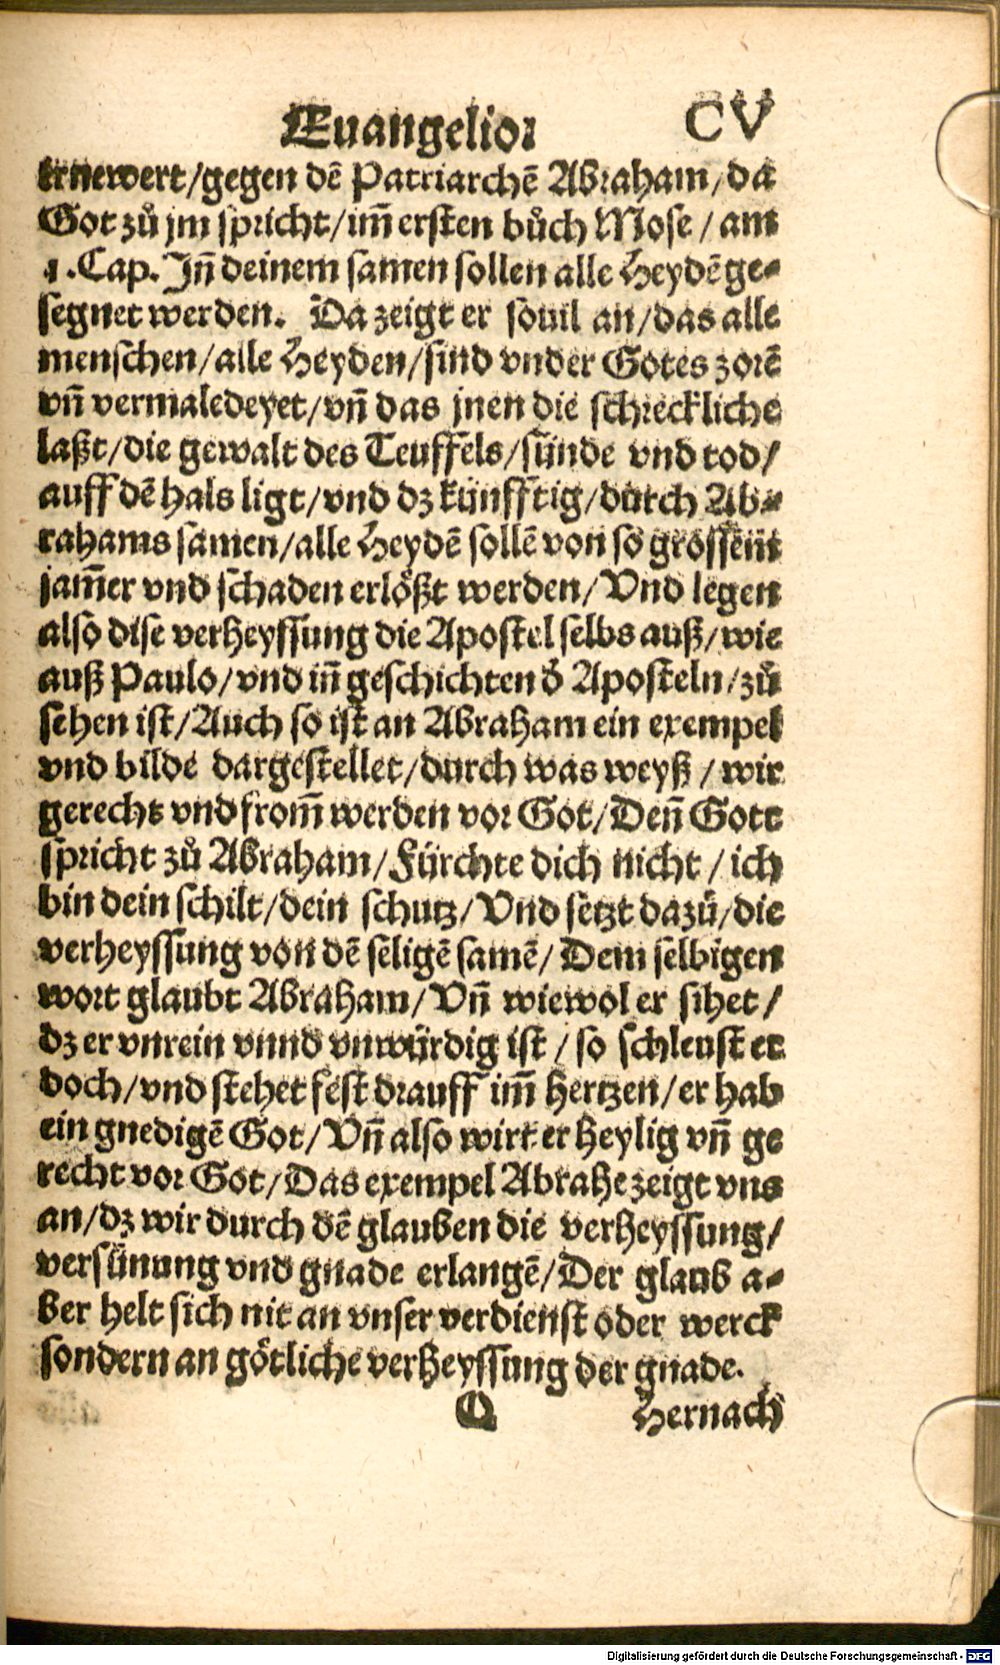 Euangelior CV
ernewert/gegen dē Patriarchē Abraham/da
Got zů jm spricht/im̃ ersten bůch Mose/am
1.Cap. Jn̄ deinem samen sollen alle Heydē ge-
segnet werden. Da zeigt er souil an/das alle
menschen/alle Heyden/sind vnder Gotes zorē
vn̄ vermaledeyet/vn̄ das jnen die schreckliche
laßt/die gewalt des Teuffels/sünde vnd tod/
auff dē hals ligt/vnd dz künfftig/durch Ab-
rahams samen/alle Heydē sollē von so grossem
jam̃er vnd schaden erlößt werden/Vnd legen
also dise verheyssung die Apostel selbs auß/wie
auß Paulo/vnd in̄ geschichten d̕ Aposteln/zů
sehen ist/Auch so ist an Abraham ein exempel
vnd bilde dargestellet/durch was weyß/wir
gerecht vnd from̃ werden vor Got/Den̄ Gott
spricht zů Abraham/Fürchte dich nicht/ich
bin dein schilt/dein schutz/Vnd setzt dazů/die
verheyssung von dē seligē samē/Dem selbigen
wort glaubt Abraham/Vn̄ wiewol er sihet/
dz er vnrein vnnd vnwürdig ist/so schleust er
doch/vnd stehet fest drauff im̃ hertzen/er hab
ein gnedigē Got/Vn̄ also wirt er heylig vn̄ ge
recht vor Got/Das exempel Abrahe zeigt vns
an/dz wir durch dē glauben die verheyssung/
versünung vnd gnade erlangē/Der glaub a-
ber helt sich nit an vnser verdienst oder werck
sondern an götliche verheyssung der gnade.
Q Hernach
Digitalisierung gefördert durch die Deutsche Forschungsgemeinschaft - DFG